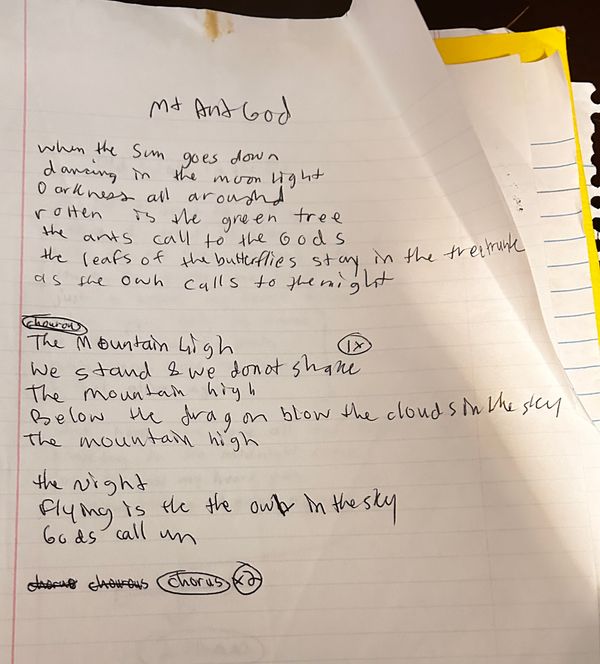 Mt Ant God
when the Sun goes down
dancing in the moon light
Darkness all around
rotten is the green tree
the ants call to the Gods
the leafs of the butterflies stay in the treetrunk
as the owh calls to the night
chourous
The Mountain high 1x
We stand & we donot shake
The mountain high
Below the dragon blow the clouds in the sky
The mountain high
the night
flying is the the owl in the sky
Gods call un
chorus chourous chorus x2